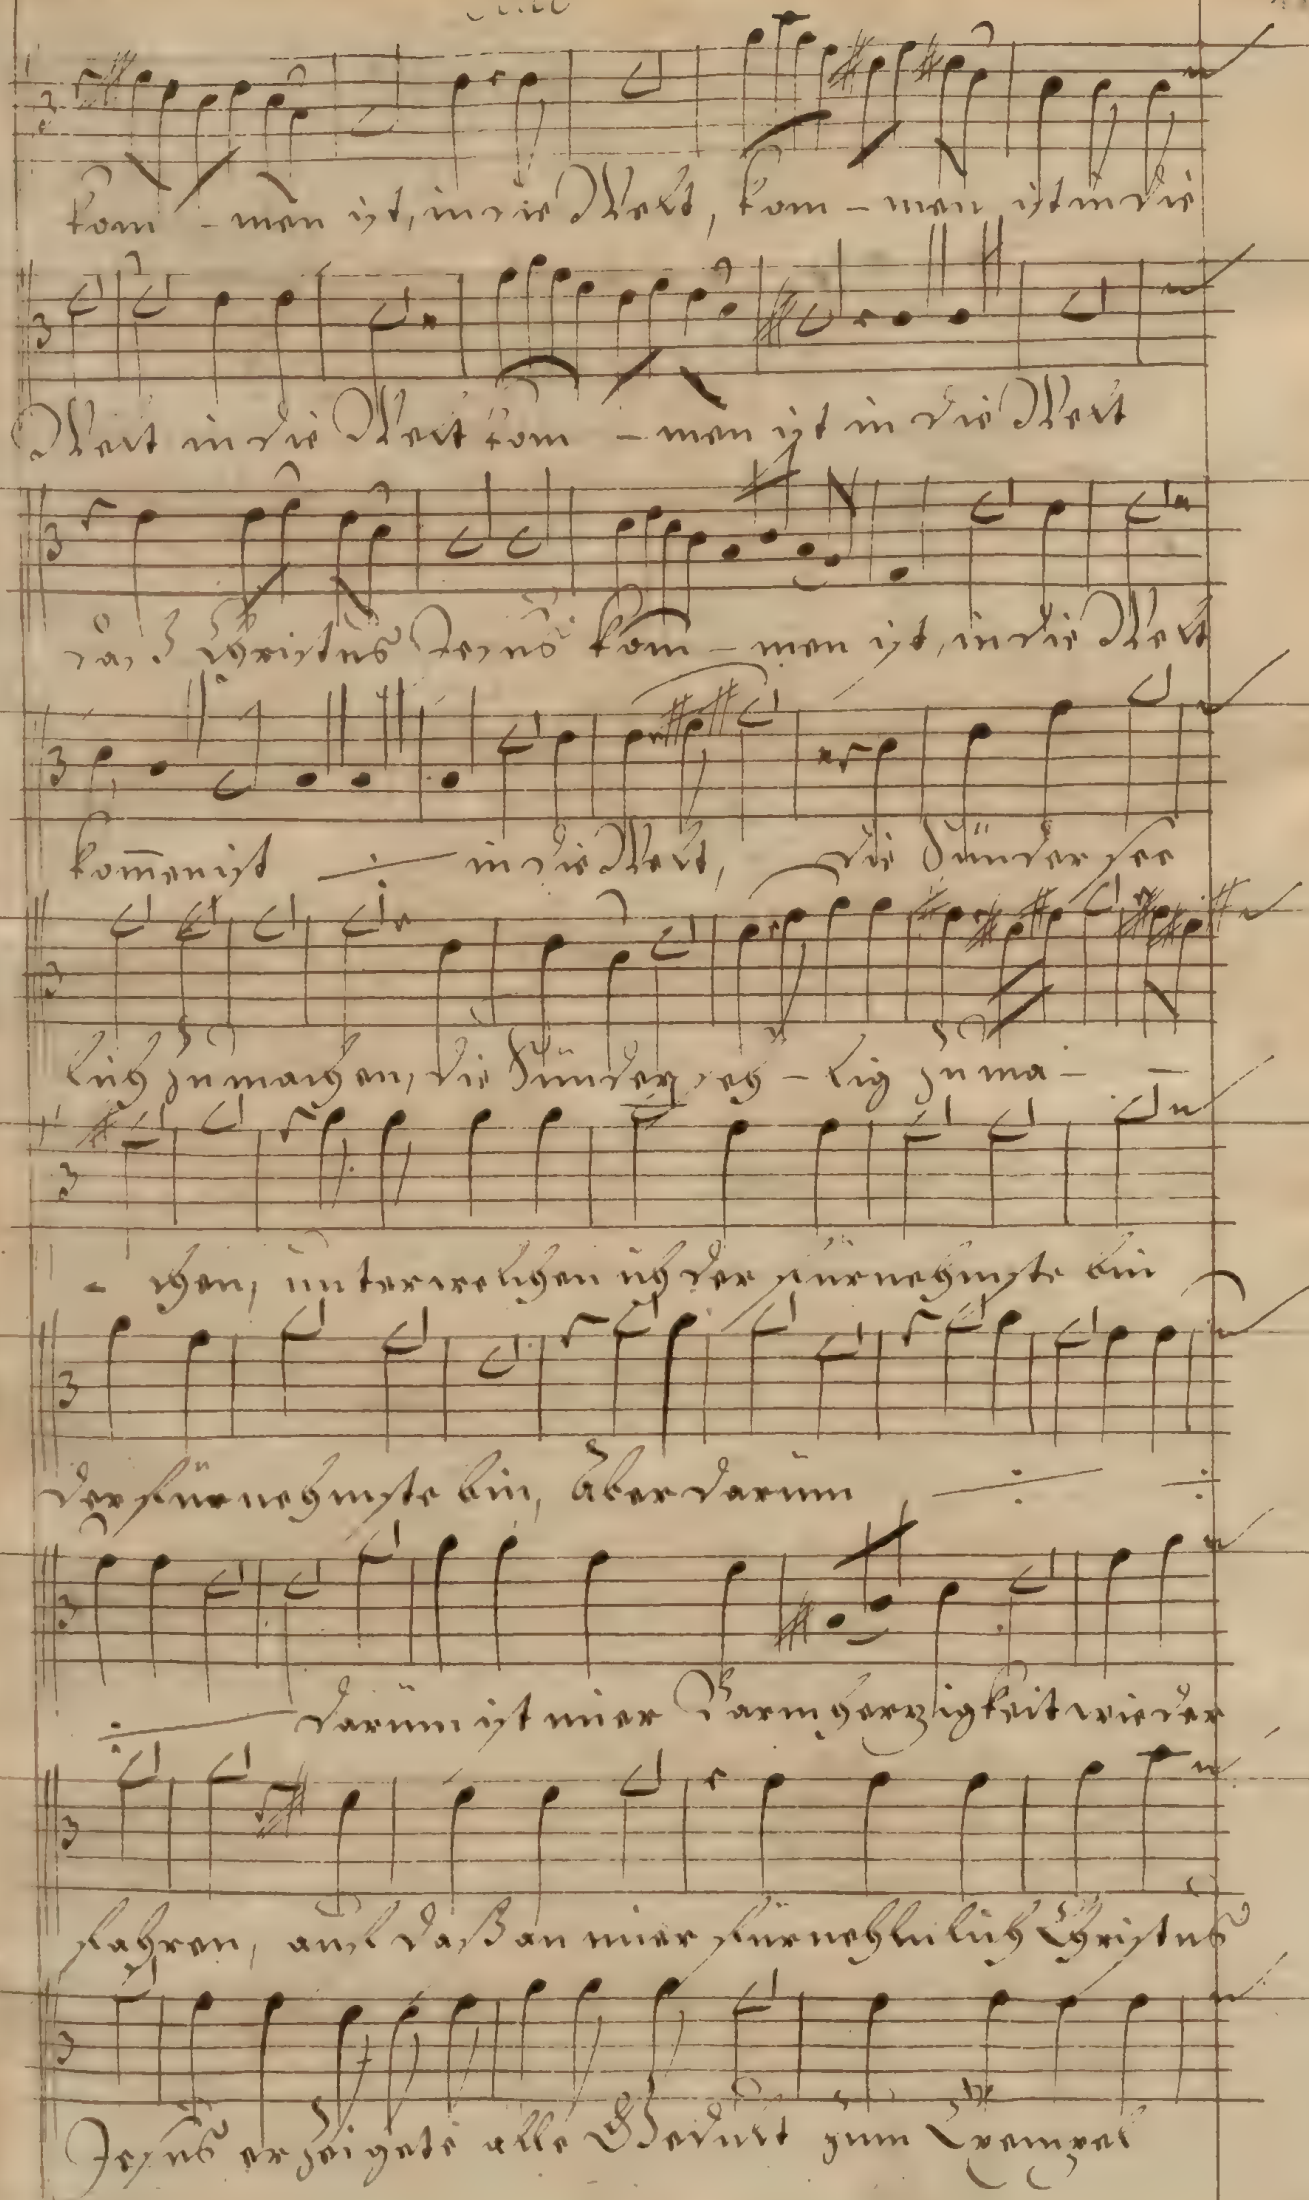 kom - men ist, in die Welt, kom - men ist in die
Welt in die Welt kom - men ist in die Welt
daß Christus Jesus kom - men ist, in die Welt
kom̅en ist in die Welt, die Sünder see
lich zu machen, die Sünder seh - lig zu ma - -
- chen, unter welichen ich der fürnehmste bin
der fürnehmste bin, Aber darum
darüm ist mier Barmherzigkeit wieder
fahren, auf daß an mier fürnehmlich Christus
Jesus erzeigete alle Gedult zum Exempel